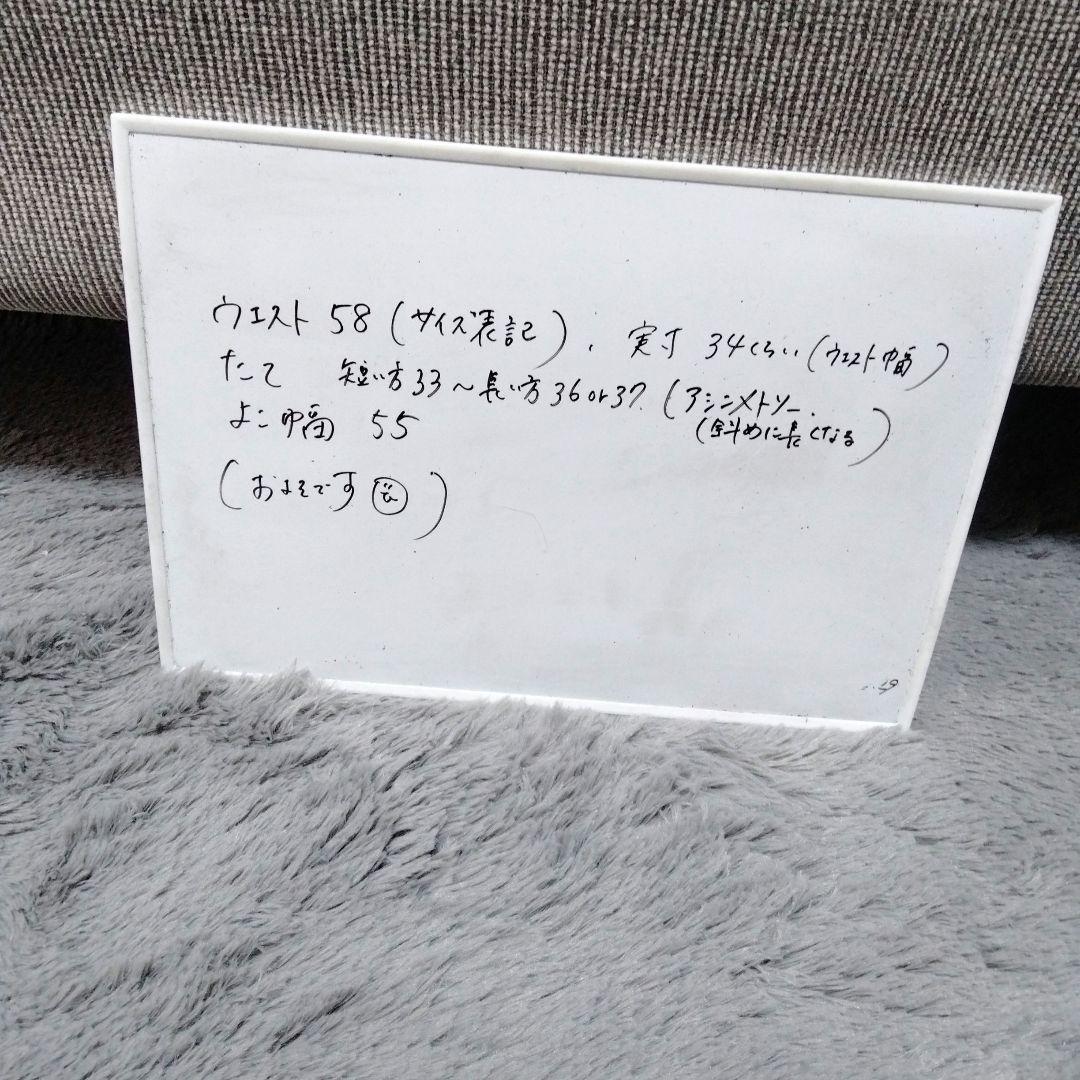 ウエスト 58 (サイズ表記)、実寸 34くらい(ウエスト幅)
たて 短い方33〜長い方36or37 (アシンメトリー、
(斜めに長くなる)
よこ幅 55
(およそです)